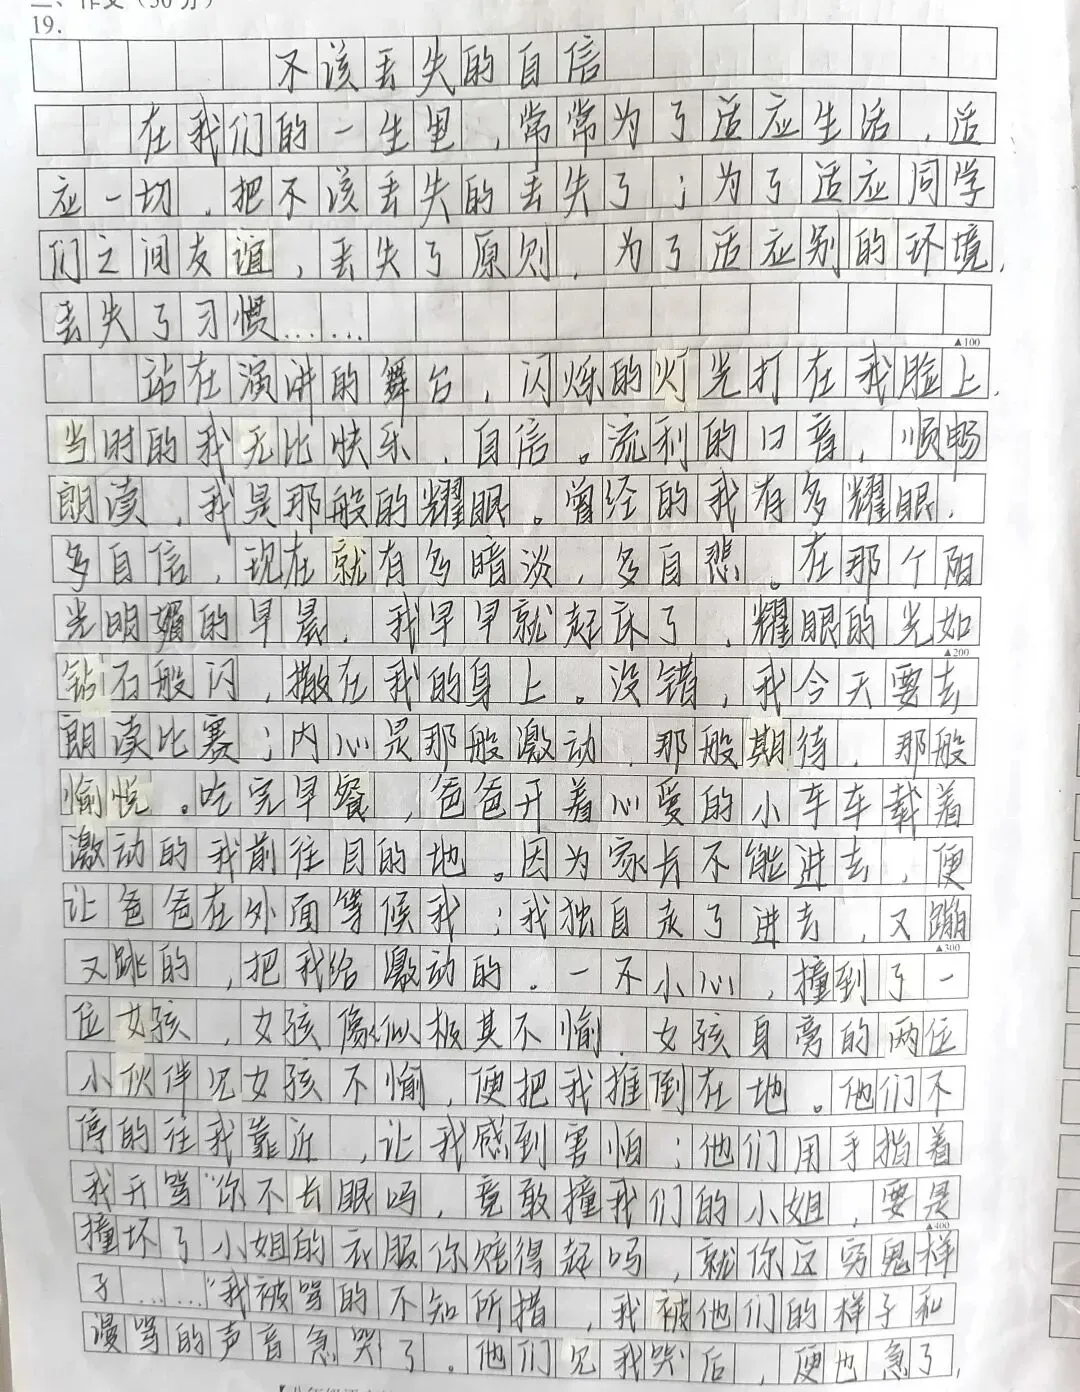 二、作文(50分)
19.
不该丢失的自信
在我们的一生里，常常为了适应生活，适
应一切，把不该丢失的丢失了；为了适应同学
们之间友谊，丢失了原则，为了适应别的环境，
丢失了习惯……
▲100
站在演讲的舞台，闪烁的灯光打在我脸上，
当时的我无比快乐，自信。流利的口音，顺畅
朗读，我是那般的耀眼。曾经的我有多耀眼，
多自信，现在就有多暗淡，多自悲。在那个阳
光明媚的早晨，我早早就起床了，耀眼的光如
▲200
钻石般闪，撒在我的身上。没错，我今天要去
朗读比赛；内心是那般激动，那般期待，那般
愉悦。吃完早餐，爸爸开着心爱的小车车载着
激动的我前往目的地。因为家长不能进去，便
让爸爸在外面等候我；我独自走了进去，又蹦
▲300
又跳的，把我给激动的。一不小心，撞到了一
位女孩，女孩像似极其不愉，女孩身旁的两位
小伙伴见女孩不愉，便把我推倒在地。他们不
停的往我靠近，让我感到害怕；他们用手指着
我开骂“你不长眼吗，竟敢撞我们的小姐，要是
▲400
撞坏了小姐的衣服你赔得起吗，就你这穷鬼样
子……”我被骂的不知所措，我被他们的样子和
谩骂的声音急哭了。他们见我哭后，便也急了，